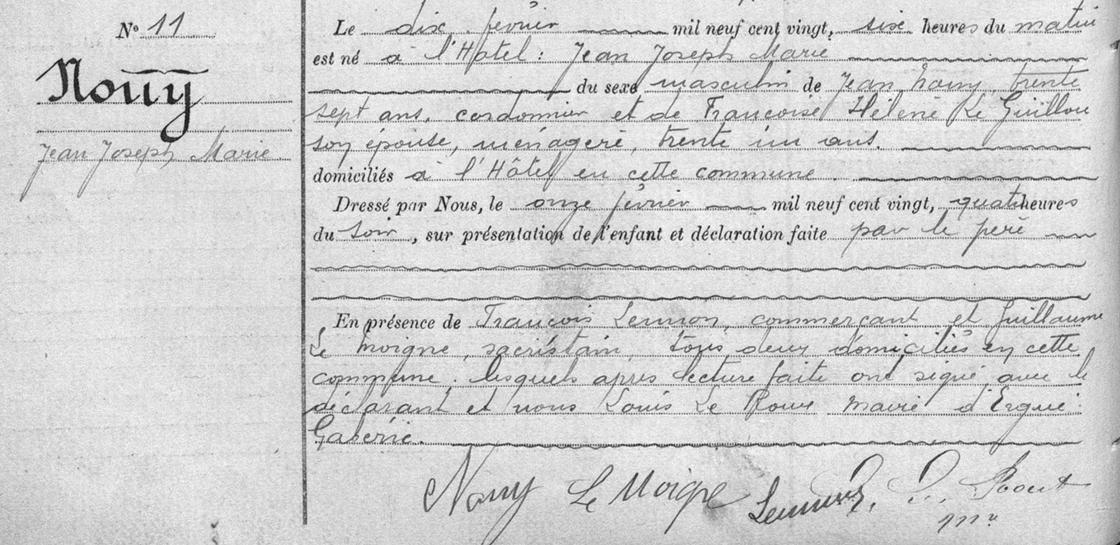 N° 11
Nouy
Jean Joseph Marie
Le dix février mil neuf cent vingt, six heures du matin
est né à l'Hôtel : Jean Joseph Marie
du sexe masculin de Jean Nouy, trente
sept ans, cordonnier et de Françoise Hélène Le Guillou
son épouse, ménagère, trente un ans.
domiciliés à l'Hôtel en cette commune.
Dressé par Nous, le onze février mil neuf cent vingt, quatre heures
du soir, sur présentation de l'enfant et déclaration faite par le père
En présence de François Lennon, commerçant et Guillaume
Le Moigne, sacristain, tous deux domiciliés en cette
commune. lesquels après lecture faite ont signé avec le
déclarant et nous Louis Le Roux maire d'Ergué-
Gabéric.
Nouy Le Moigne